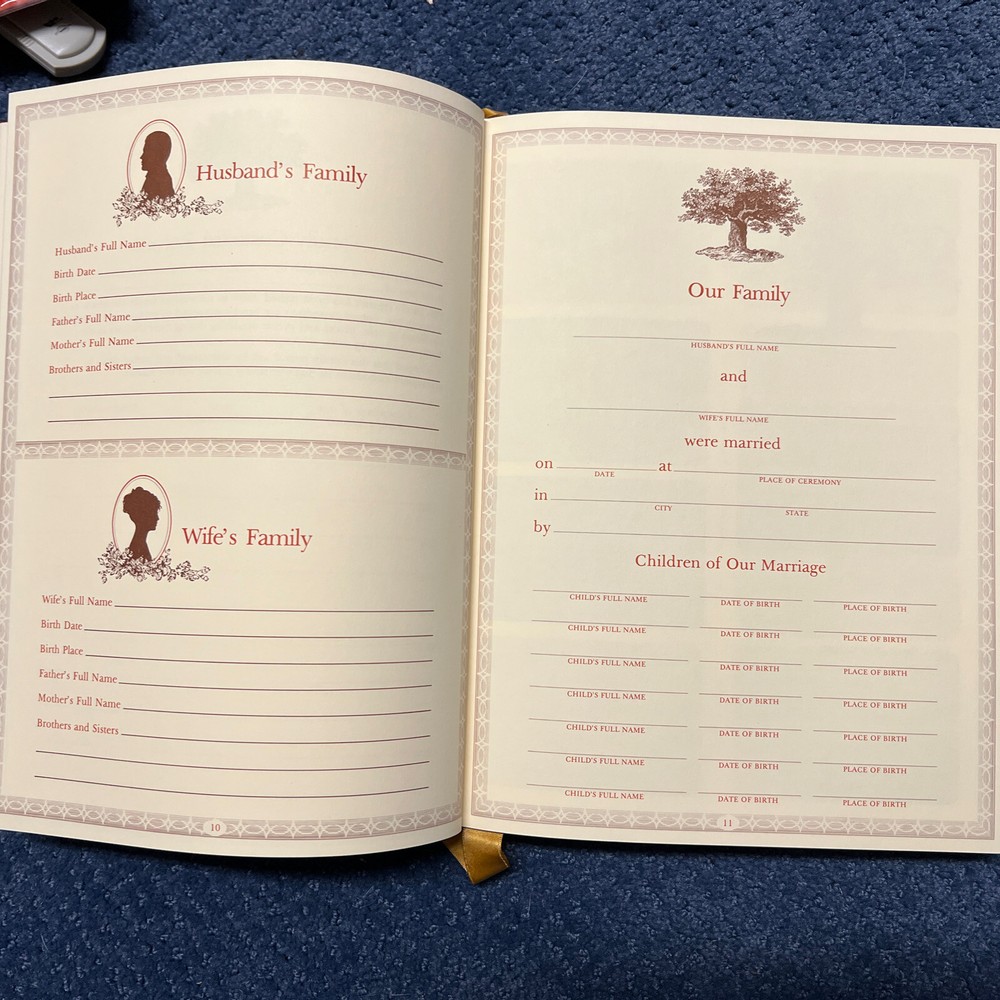 Husband's Family
Husband's Full Name
Birth Date
Birth Place
Father's Full Name
Mother's Full Name
Brothers and Sisters
Wife's Family
Wife's Full Name
Birth Date
Birth Place
Father's Full Name
Mother's Full Name
Brothers and Sisters
10
Our Family
HUSBAND'S FULL NAME
and
WIFE'S FULL NAME
were married
on at
DATE PLACE OF CEREMONY
in
CITY STATE
by
Children of Our Marriage
CHILD'S FULL NAME DATE OF BIRTH PLACE OF BIRTH
CHILD'S FULL NAME DATE OF BIRTH PLACE OF BIRTH
CHILD'S FULL NAME DATE OF BIRTH PLACE OF BIRTH
CHILD'S FULL NAME DATE OF BIRTH PLACE OF BIRTH
CHILD'S FULL NAME DATE OF BIRTH PLACE OF BIRTH
CHILD'S FULL NAME DATE OF BIRTH PLACE OF BIRTH
CHILD'S FULL NAME DATE OF BIRTH PLACE OF BIRTH
11